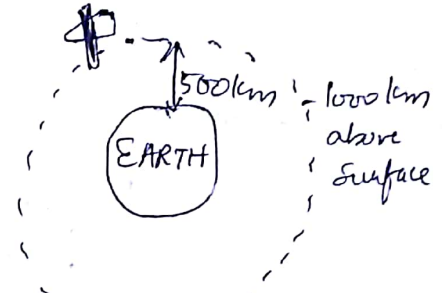 500km
1000km
above
Surface
EARTH